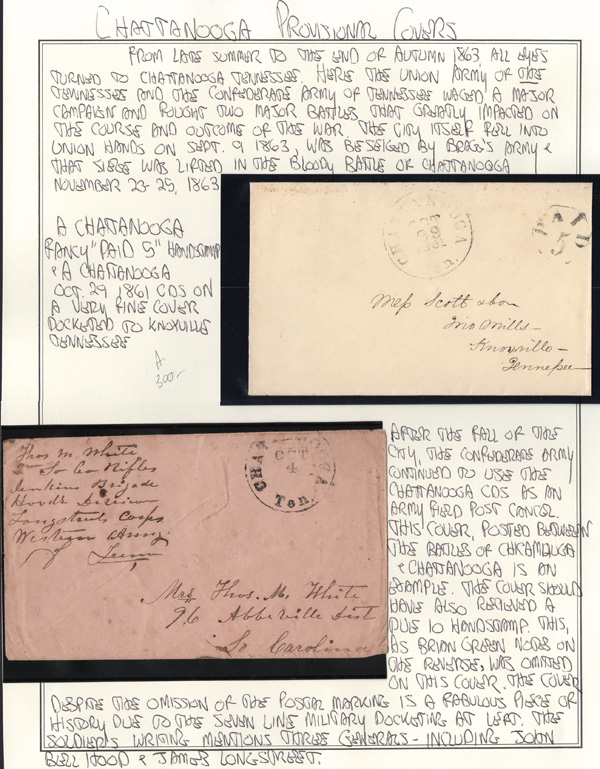 CHATTANOOGA PROVISIONAL COVERS
FROM LATE SUMMER TO THE END OF AUTUMN 1863, ALL EYES
TURNED TO CHATTANOOGA TENNESSEE. HERE THE UNION ARMY OF THE
TENNESSEE AND THE CONFEDERATE ARMY OF TENNESSEE WAGED A MAJOR
CAMPAIGN AND FOUGHT TWO MAJOR BATTLES THAT GREATLY IMPACTED ON
THE COURSE AND OUTCOME OF THE WAR. THE CITY ITSELF FELL INTO
UNION HANDS ON SEPT. 9 1863, WAS BESEIGED BY BRAGG'S ARMY &
THAT SIEGE WAS LIFTED IN THE BLOODY BATTLE OF CHATTANOOGA
NOVEMBER 23-25, 1863
A CHATTANOOGA
FANCY "PAID 5" HANDSTAMP
& A CHATTANOOGA
OCT. 29 1861 CDS ON
A VERY FINE COVER
DOCKETED TO KNOXVILLE
TENNESSEE
A
300-
PAID
5
Mess Scott & son
Ino Mills-
Knoxville-
Tennessee-
Thos M. White
2nd So Ca Rifles
Jenkins Brigade
Hoods Division
Longstreets Corps
Western Army
of Tenn
OCT
4
Ten.
Mrs Thos. M. White
96 Abbeville Dist
So Carolina
AFTER THE FALL OF THE
CITY, THE CONFEDERATE ARMY
CONTINUED TO USE THE
CHATTANOOGA CDS AS AN
ARMY FIELD POST CANCEL.
THIS COVER, POSTED BETWEEN
THE BATTLES OF CHICAMAUGA
& CHATTANOOGA IS AN
EXAMPLE. THE COVER SHOULD
HAVE ALSO RECEIVED A
DUE 10 HANDSTAMP. THIS,
AS BRIAN GREEN NOTES ON
THE REVERSE, WAS OMITTED
ON THIS COVER. THE COVER
DESPITE THE OMISSION OF THE POSTAL MARKING IS A FABULOUS PIECE OF
HISTORY DUE TO THE SEVEN LINE MILITARY DOCKETING AT LEFT. THE
SOLDIER'S WRITING MENTIONS THREE GENERALS - INCLUDING JOHN
BELL HOOD & JAMES LONGSTREET.